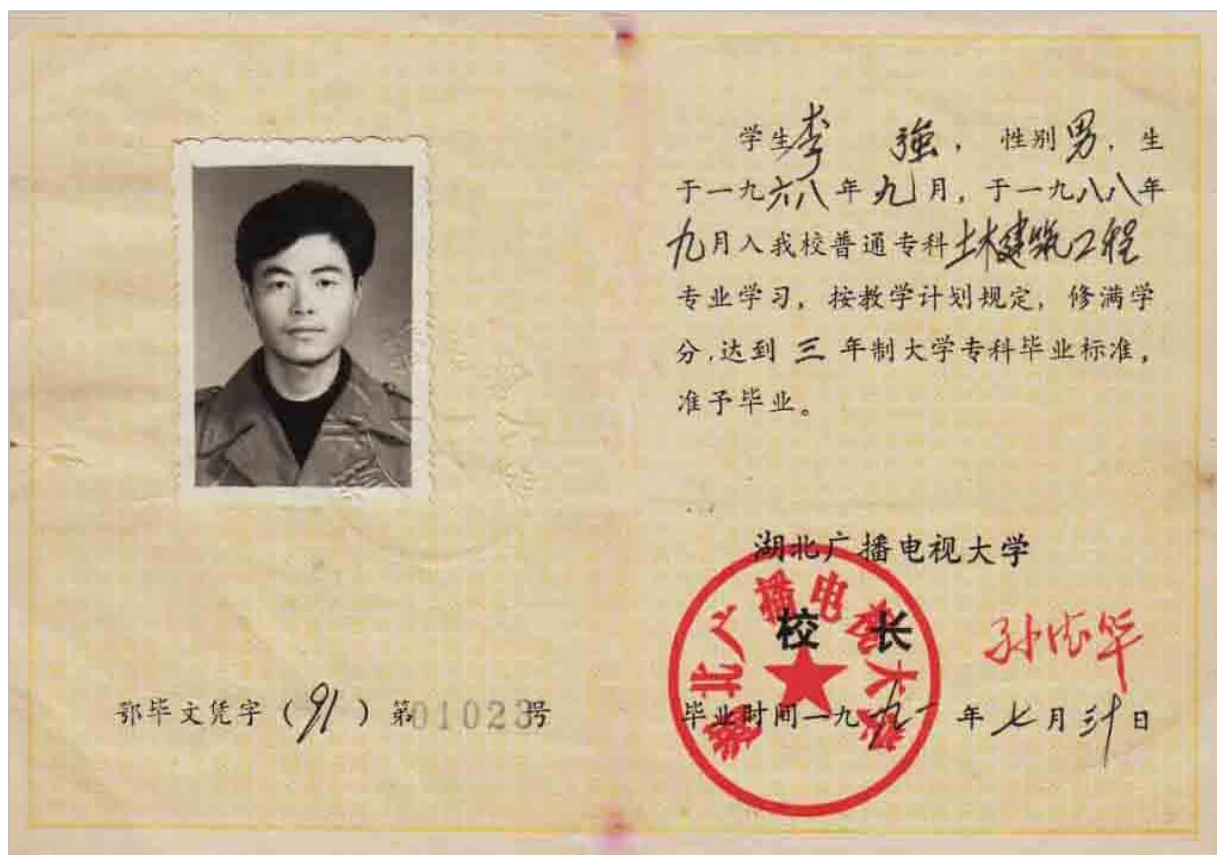 学生李強，性别男，生
于一九六八年九月，于一九八八年
九月入我校普通专科土木建筑工程
专业学习，按教学计划规定，修满学
分，达到三年制大学专科毕业标准，
准予毕业。
湖北广播电视大学
校长
毕业时间一九九一年七月三十日
鄂毕文凭字（91）第01023号
湖北广播电视大学